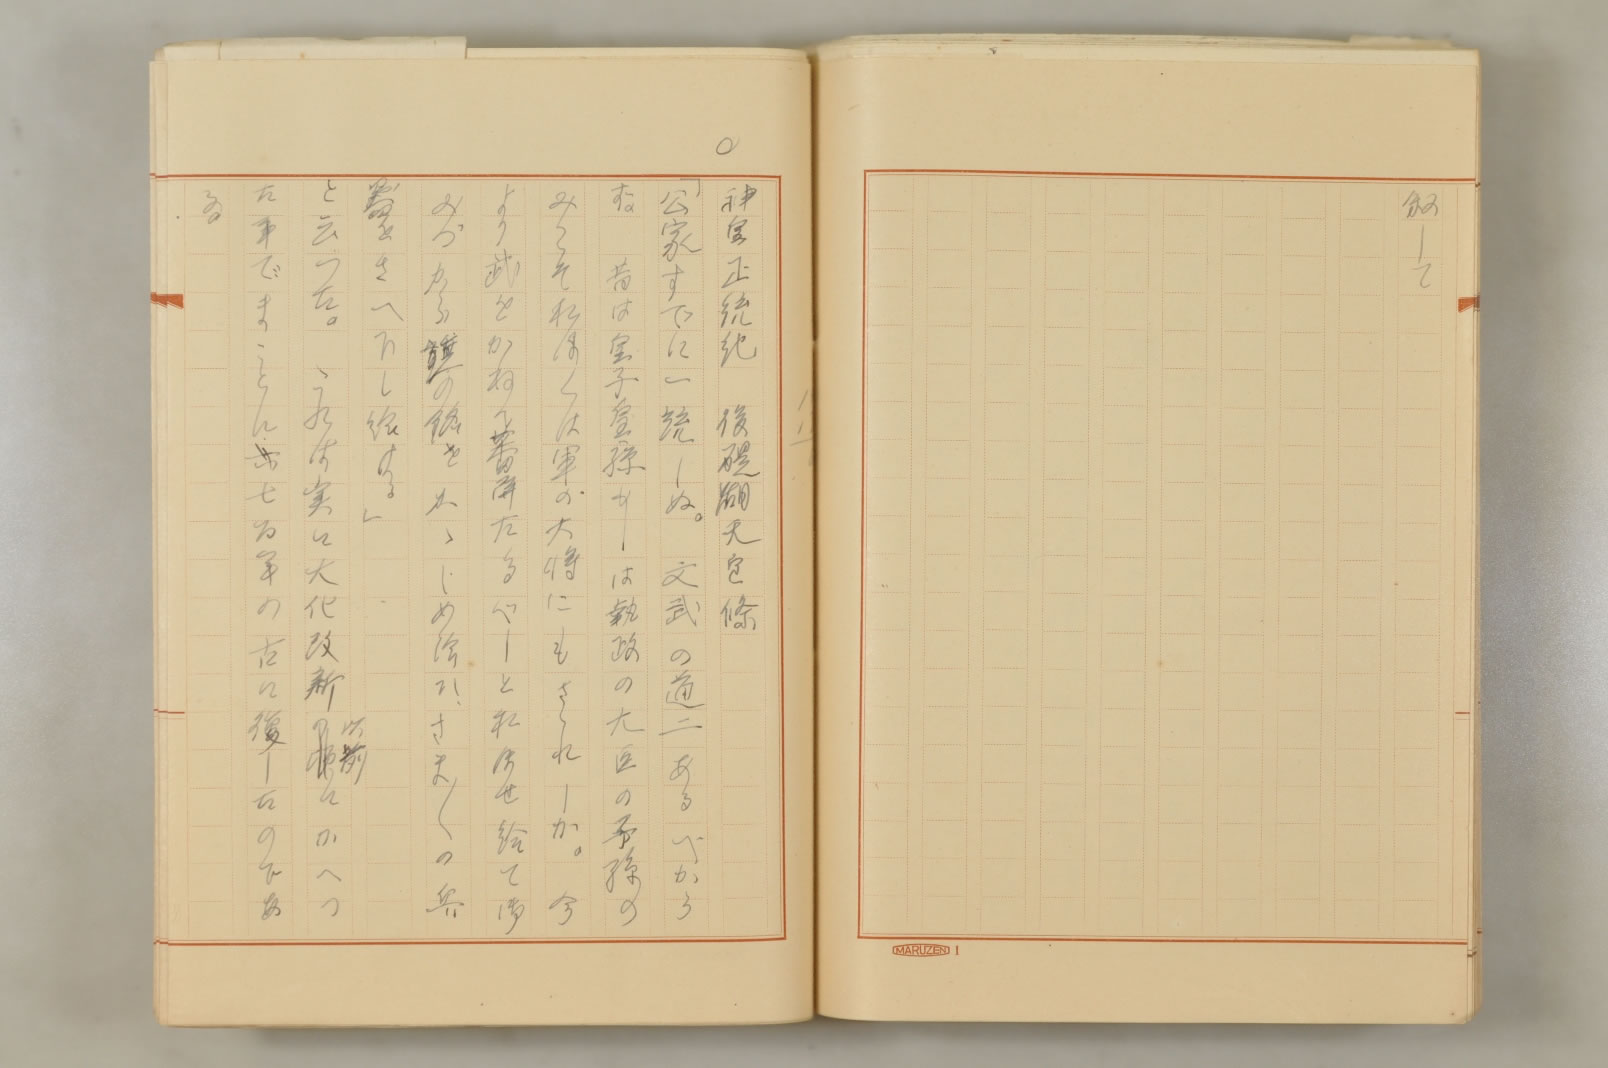 叙して
神皇正統紀　後醍醐天皇條
「公家すでに一統しぬ。文武の道二あるべから
ず　昔は皇子皇孫もしは執政の大臣の子孫の
みこそおほくは軍の大将にもさゝれしか。今
より武をかねて蕃屏たるべしとおほせ給て御
みづから旗の銘をかゝしめ給ひ、さま〲の兵
器をさへ下し給はる」
と云つた。これは実に大化改新の以前にかへつ
た事でまことに七百年の古に復したのであ
る
MARUZEN 1